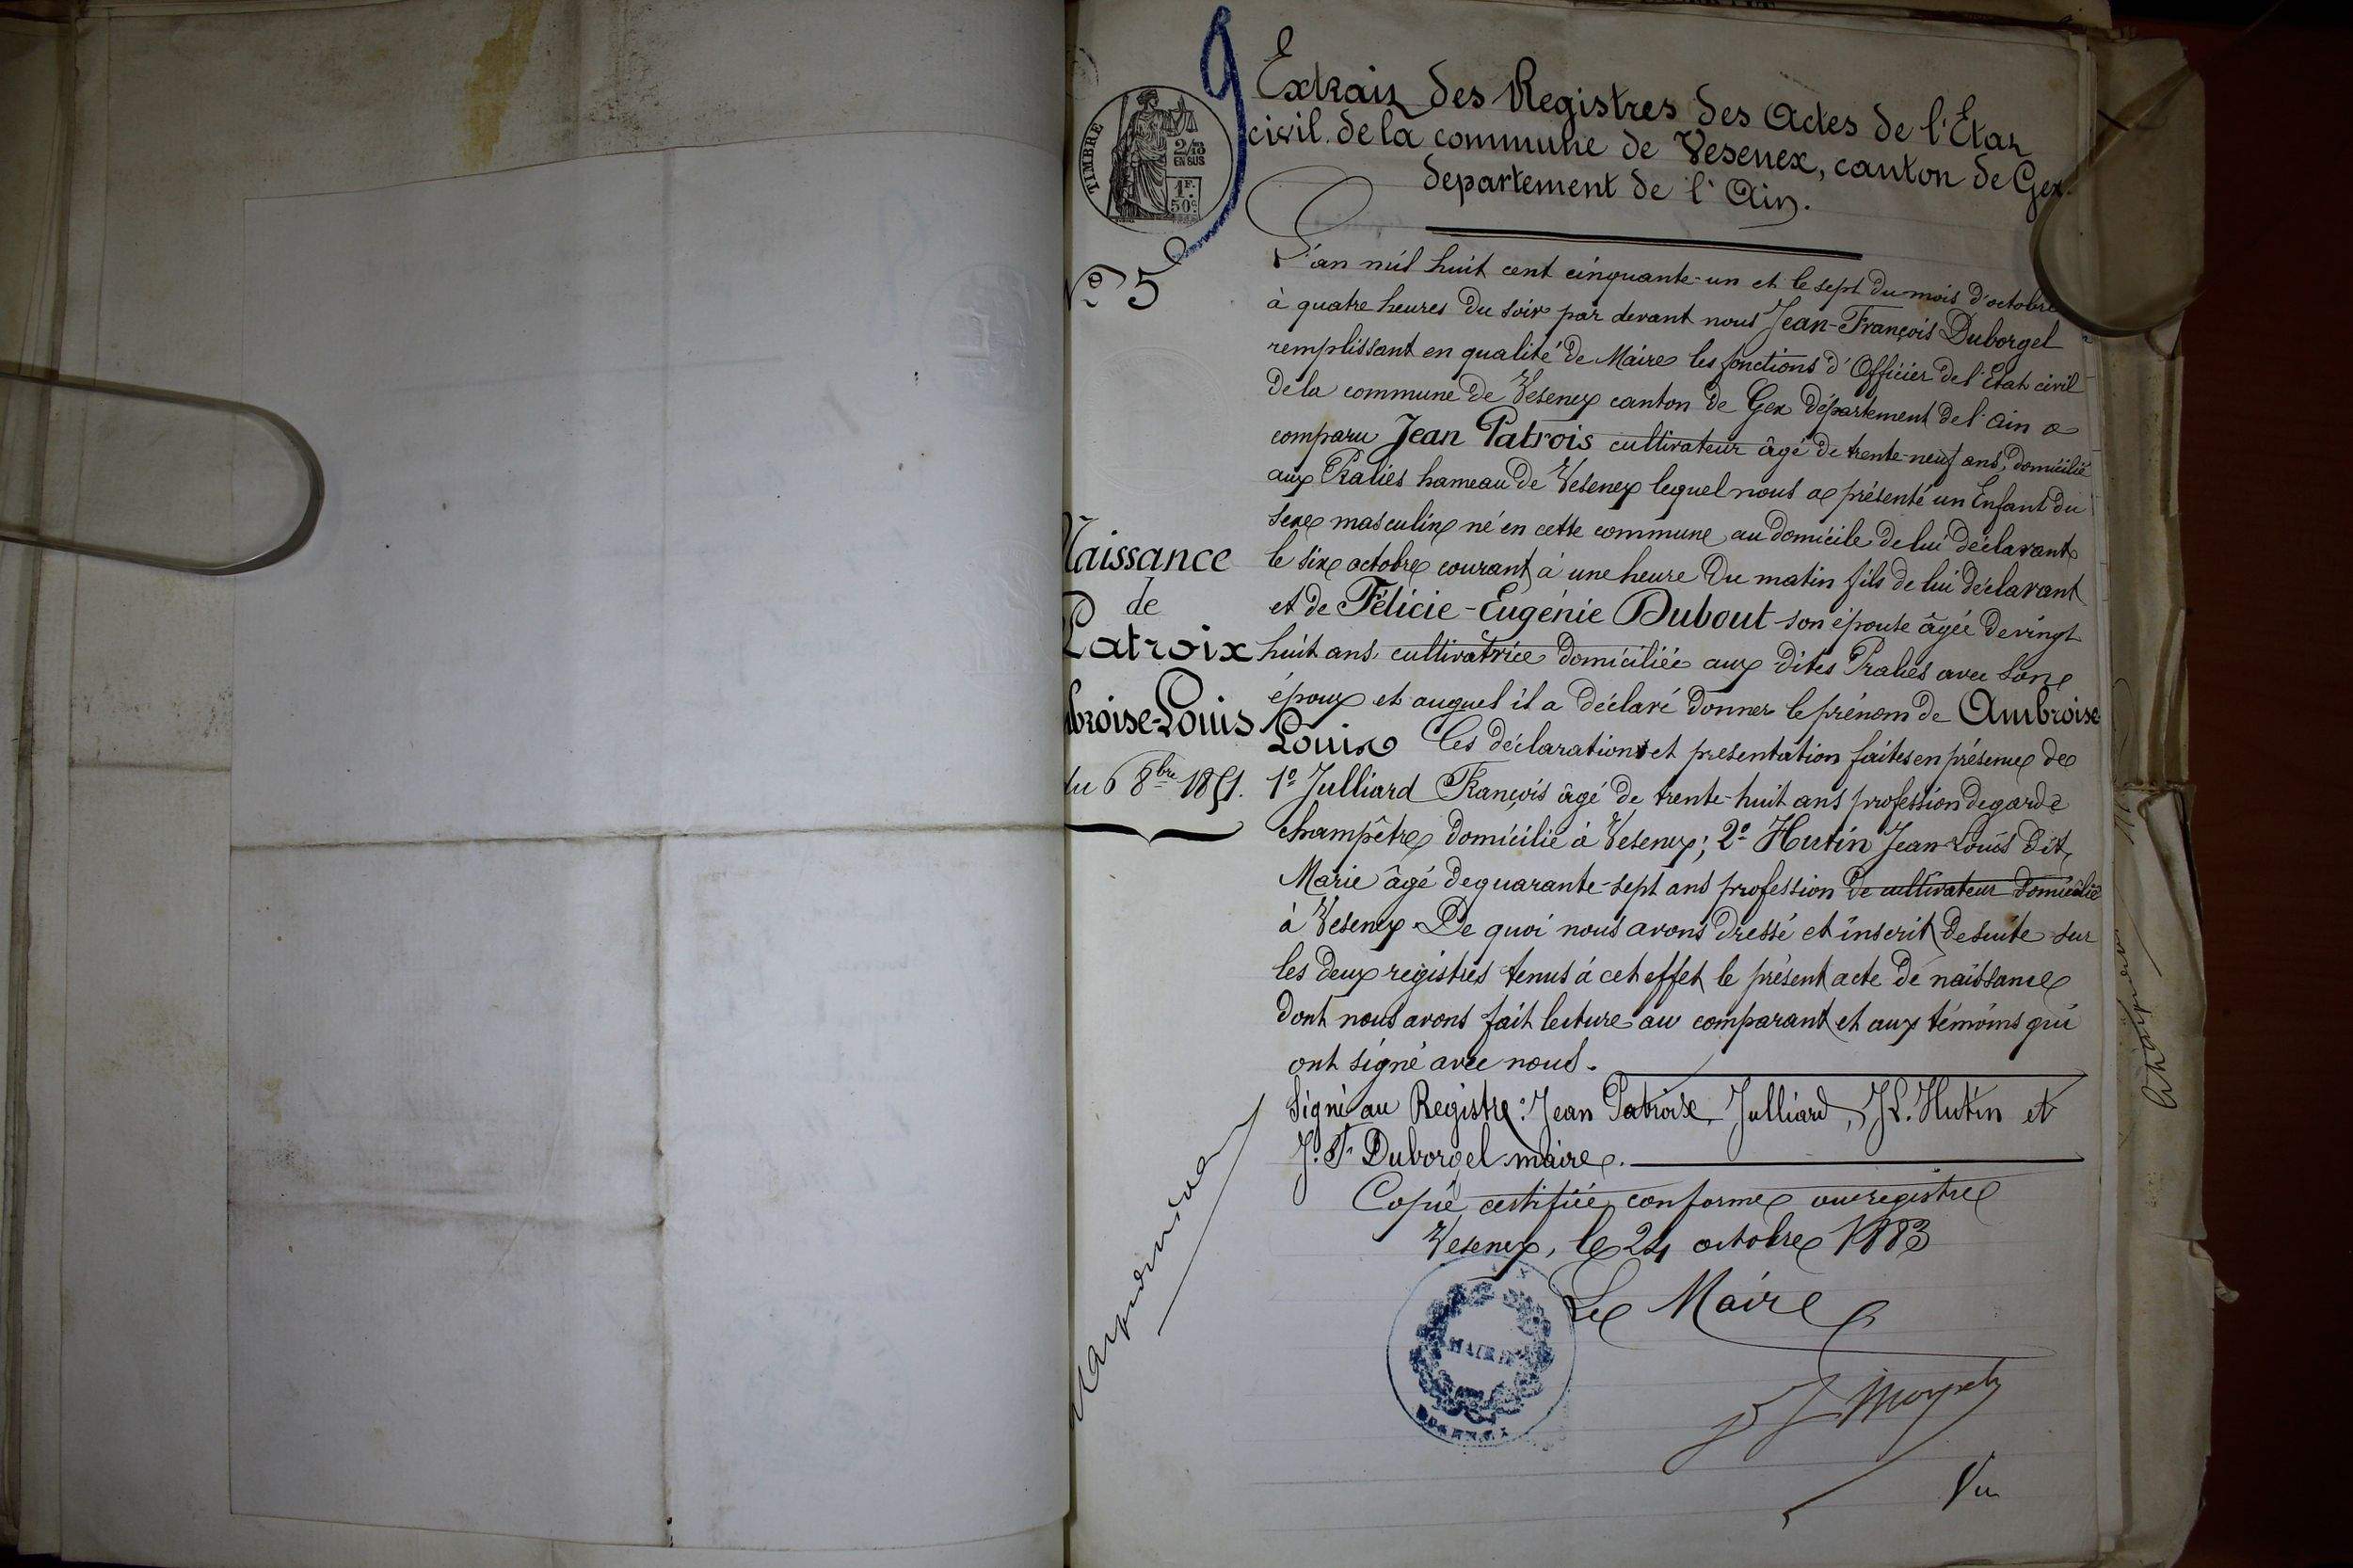 9
TIMBRE
2/10
EN SUS
1F.
50c.
Extrait des Registres des Actes de l'Etat
civil de la commune de Vesenex, canton de Gex
département de l'Ain.
No 5
L'an mil huit cent cinquante-un et le sept du mois d'octobre
à quatre heures du soir par devant nous Jean-François Duborgel
remplissant en qualité de Maire les fonctions d'Officier de l'Etat civil
de la commune de Vesenex canton de Gex département de l'Ain a
comparu Jean Patrois cultivateur âgé de trente-neuf ans, domicilié
aux Pralies hameau de Vesenex lequel nous a présenté un Enfant du
sexe masculin né en cette commune au domicile de lui déclarant
le six octobre courant à une heure du matin fils de lui déclarant
et de Félicie-Eugénie Dubout son épouse âgée de vingt
huit ans, cultivatrice domiciliée aux dites Pralies avec son
époux et auquel il a déclaré donner le prénom de Ambroise-
Louis Ces déclarations et presentation faites en présence de
1o Julliard François âgé de trente-huit ans profession de garde
champêtre domicilié à Vesenex; 2o Hutin Jean-Louis dit
Marie âgé de quarante-sept ans profession de cultivateur domicilié
à Vesenex De quoi nous avons dressé et inscrit de suite sur
les deux registres tenus à cet effet le présent acte de naissance
dont nous avons fait lecture au comparant et aux témoins qui
ont signé avec nous.
Signé au Registre: Jean Patroix, Julliard, J.L. Hutin et
J. F. Duborgel maire.
Copie certifiée conforme au registre
Vesenex, le 24 octobre 1883
Le Maire
MAIRIE
Vu
Naissance
de
Patroix
broise-Louis
du 6 8bre 1851.